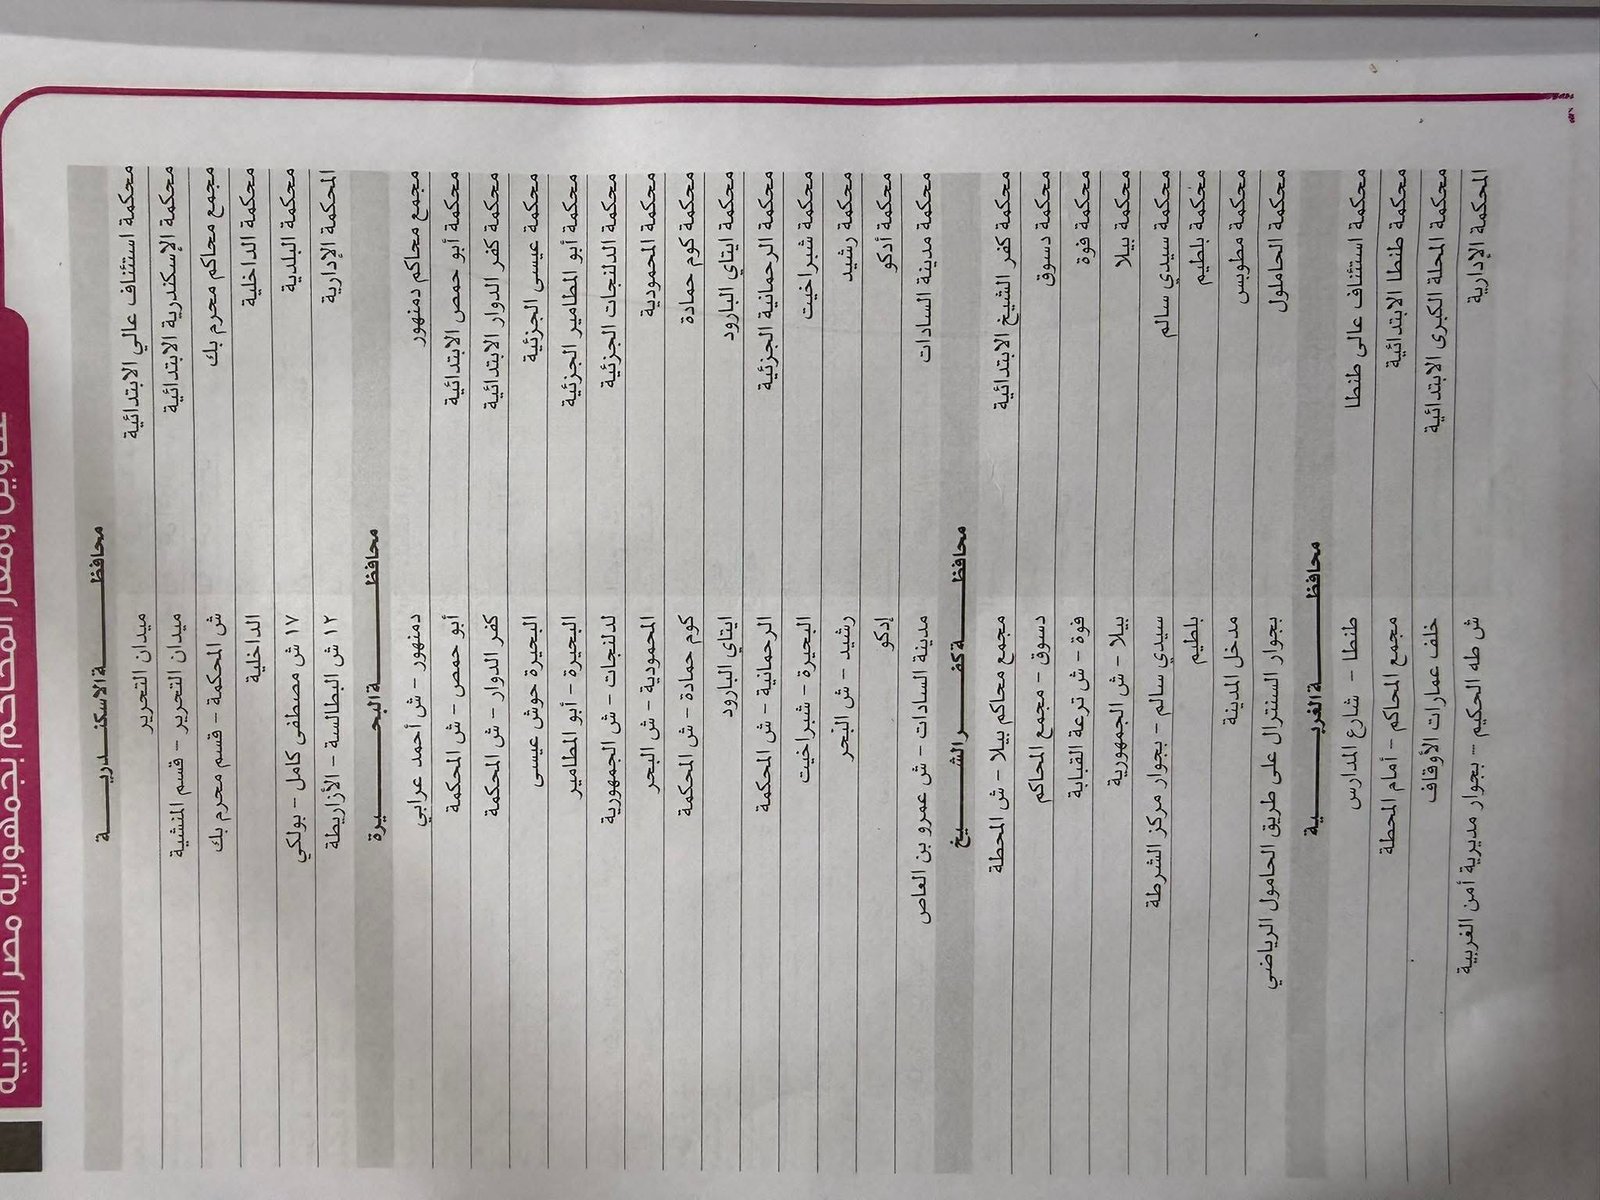 عناوين ومقار المحاكم بجمهورية مصر العربية
محافظـــــة الاسكندريـــــة
محكمة استئناف عالي الابتدائية ميدان التحرير
محكمة الإسكندرية الابتدائية ميدان التحرير - قسم المنشية
مجمع محاكم محرم بك ش المحكمة - قسم محرم بك
محكمة الداخلية الداخلية
محكمة البلدية ١٧ ش مصطفى كامل - بولكي
المحكمة الإدارية ١٢ ش البطالسة - الأزاريطة
محافظـــــة البحـــــيرة
مجمع محاكم دمنهور دمنهور - ش أحمد عرابي
محكمة أبو حمص الابتدائية أبو حمص - ش المحكمة
محكمة كفر الدوار الابتدائية كفر الدوار - ش المحكمة
محكمة عيسى الجزئية البحيرة حوش عيسى
محكمة أبو المطامير الجزئية البحيرة - أبو المطامير
محكمة الدلنجات الجزئية لدلنجات - ش الجمهورية
محكمة المحمودية المحمودية - ش البحر
محكمة كوم حمادة كوم حمادة - ش المحكمة
محكمة ايتاي البارود ايتاي البارود
محكمة الرحمانية الجزئية الرحمانية - ش المحكمة
محكمة شبراخيت البحيرة - شبراخيت
محكمة رشيد رشيد - ش البحر
محكمة أدكو إدكو
محكمة مدينة السادات مدينة السادات - ش عمرو بن العاص
محافظـــــة كفـــــر الشـــــيخ
محكمة كفر الشيخ الابتدائية مجمع محاكم بيلا - ش المحطة
محكمة دسوق دسوق - مجمع المحاكم
محكمة فوة فوة - ش ترعة القبابة
محكمة بيلا بيلا - ش الجمهورية
محكمة سيدي سالم سيدي سالم - بجوار مركز الشرطة
محكمة بلطيم بلطيم
محكمة مطوبس مدخل المدينة
محكمة الحاملول بجوار السنترال على طريق الحامول الرياضي
محافظـــــة الغربـــــية
محكمة استئناف عالى طنطا طنطا - شارع المدارس
محكمة طنطا الابتدائية مجمع المحاكم - أمام المحطة
محكمة المحلة الكبرى الابتدائية خلف عمارات الأوقاف
المحكمة الإدارية ش طه الحكيم - بجوار مديرية أمن الغربية